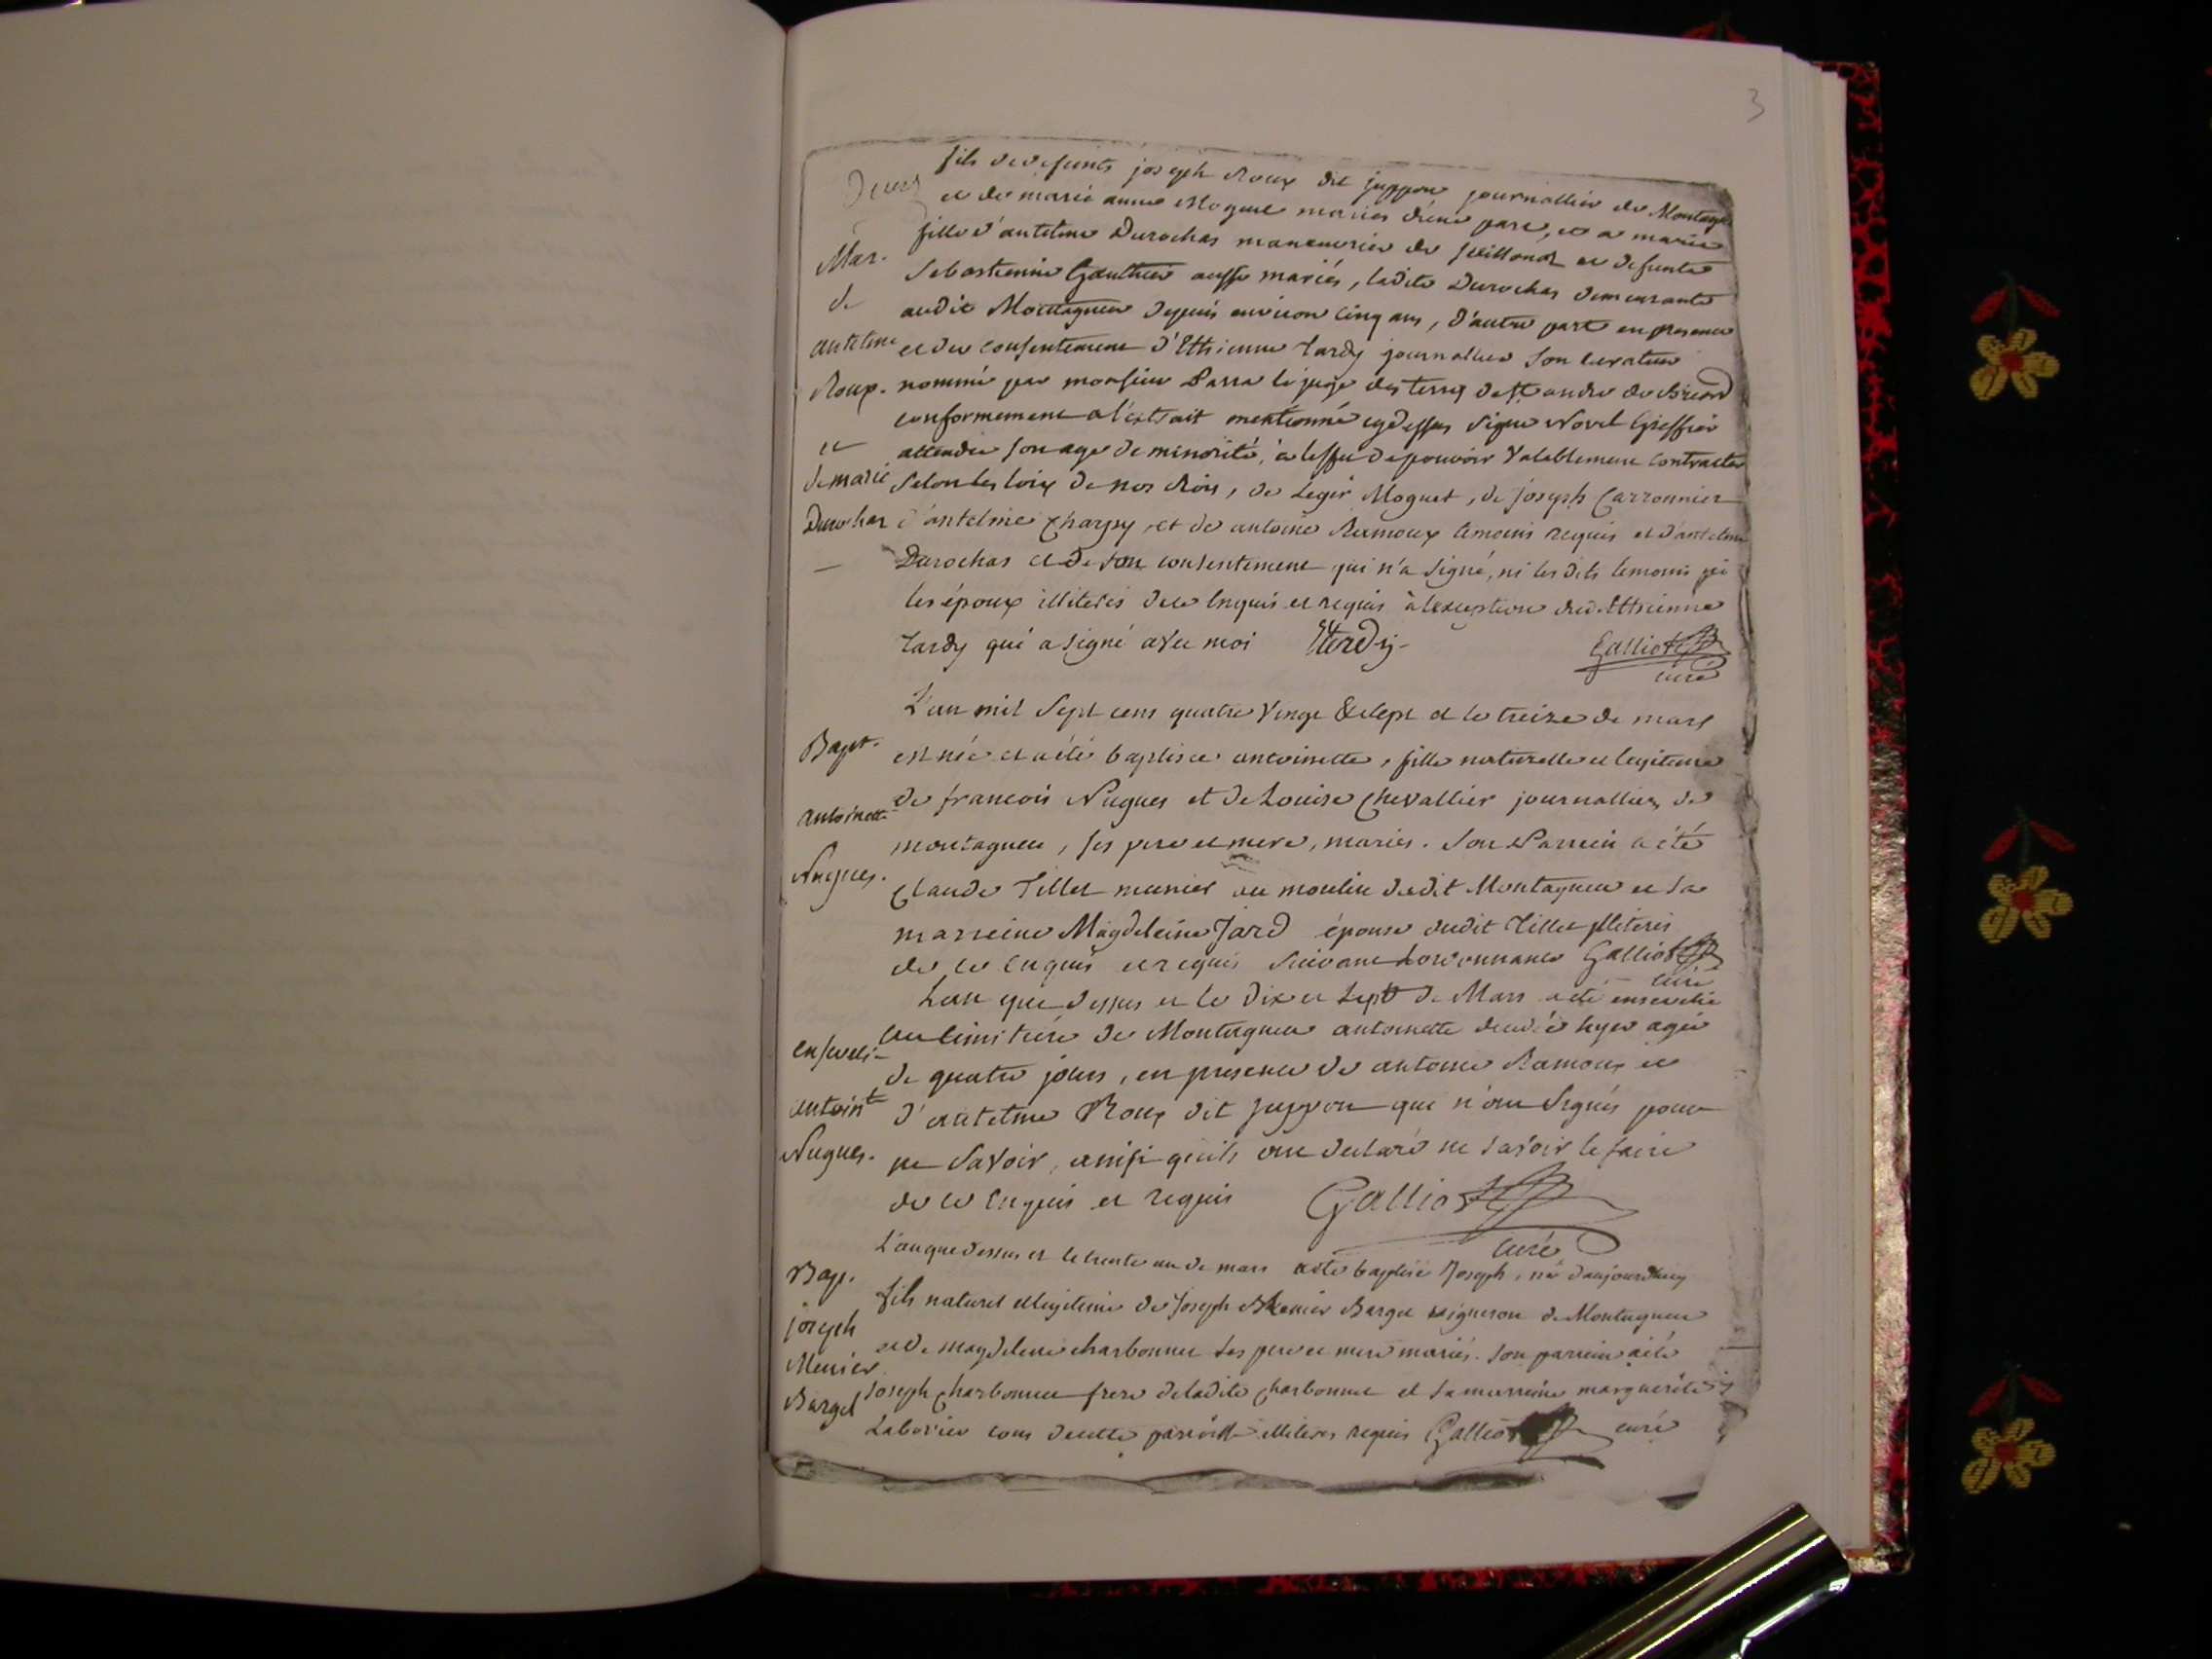 3
fils de defunts joseph Roux dit juppon journallier de Montagn
et de marie anne Moguet mariés d'une part, et a marie
fille d'antelme Durochas manœuvrier de seillonaz et defunte
Mar. Sebastienne Gauthier aussy mariés, ladite Durochas demeurante
de audit Montagneu depuis environ cinq ans, d'autre part en presence
antelme et du consentement d'Ethienne Tardy journallier son curateur
Roux. nommé par monsieur Parra le juge des terres de st andre de Briord
conformement a l'extrait mentionné cydessus signé Novel Greffier
et attendu son age de minorité, a leffet de pouvoir valablement contracter
de marie selon les loix de nos Rois, de Leger Moguet, de joseph Carronnier
Durochas d'antelme Charpy, et de antoine Ramoux temoins requis et d'antelme
Durochas et de son consentement qui n'a signé, ni les dits temoins ni
les époux illiterés de ce enquis et requis à lexception dud. Ethienne
Tardy qui a signé avec moi Etardy Galliot
curé
L'an mil sept cens quatre vingt & sept et le treize de mars
Bapt. est née et a été baptisée antoinette, fille naturelle et legitime
antoinette de francois Nugues et de Louise Chevallier journalliers de
montagneu, ses pere et mere, mariés. Son Parrein a été
Nugues. Claude Tillet munier au moulin dudit Montagneu et sa
marreine Magdeleine Jard épouse dudit Tillet illiterés
de ce enquis et requis suivant Lordonnance Galliot
curé
Lan que dessus et le dix et sept de Mars a été ensevelie
enseveli- au cimitiere de Montagneu antoinette decedée hyer agée
de quatre jours, en presence de antoine Ramoux et
antointe d'antelme Roux dit juppon qui n'ont signés pour
Nugues. ne savoir, ainsi qu'ils ont declaré ne savoir le faire
de ce enquis et requis Galliot
curé
L'an que dessus et le trente un de mars a été baptisé Joseph, né daujourdhuy
Bap. fils naturel et legitime de Joseph Menier Barget vigneron de Montagneu
joseph et de magdeleine charbonnet ses pere et mere mariés. Son parrein a été
Menier
Barget Joseph Charbonnet frere de ladite Charbonnet et sa marreine marguerite
Laborier tous de cette paroisse illiterés requis Galliot curé